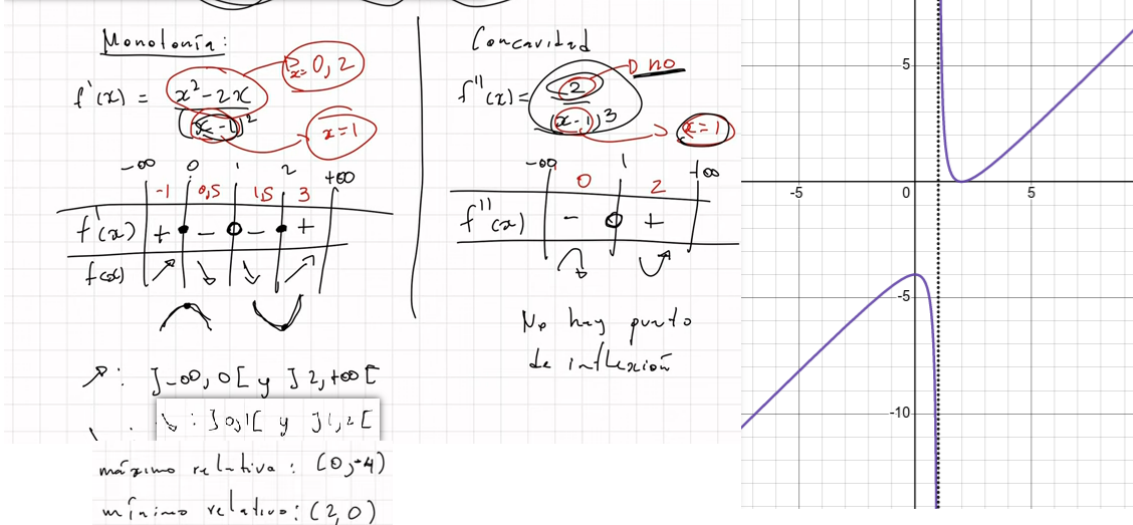 Monotonía:
x = 0, 2
f'(x) = x² - 2x / (x-1)²
x=1
-∞ 0 1 2 +∞
-1 0,5 1,5 3
f'(x) + - - +
f(x) ↗ ↘ ↘ ↗
↗: ]-∞, 0[ y ]2, +∞[
↘: ]0,1[ y ]1,2[
máximo relativo: (0,-4)
mínimo relativo: (2,0)
Concavidad
no
f''(x) = 2 / (x-1)³
x=1
-∞ 1 +∞
0 2
f''(x) - +
No hay punto
de inflexión
5
-5 0 5
-5
-10